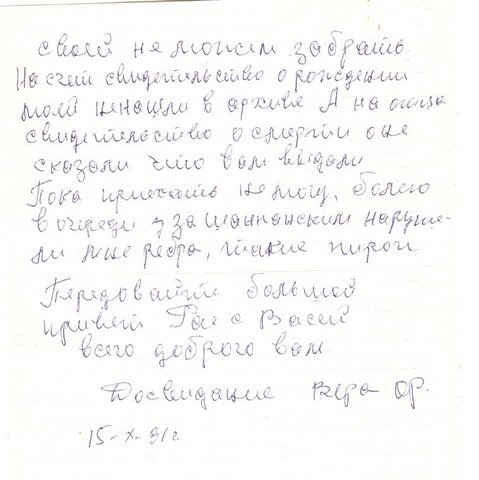 своей не можем забрать.
На счет свидетельство о рождении
моей ненашли в архиве А на отца
свидетельство о смерти оне
сказали что вам выдали
Пока приехать не могу, болею
в очереди за шампанским наруши-
ли мне ребра, такие пироги
Передовайте большой
привет Рае с Васей
всего доброго вам.
Досвидание Вера ор.
15-X-91г